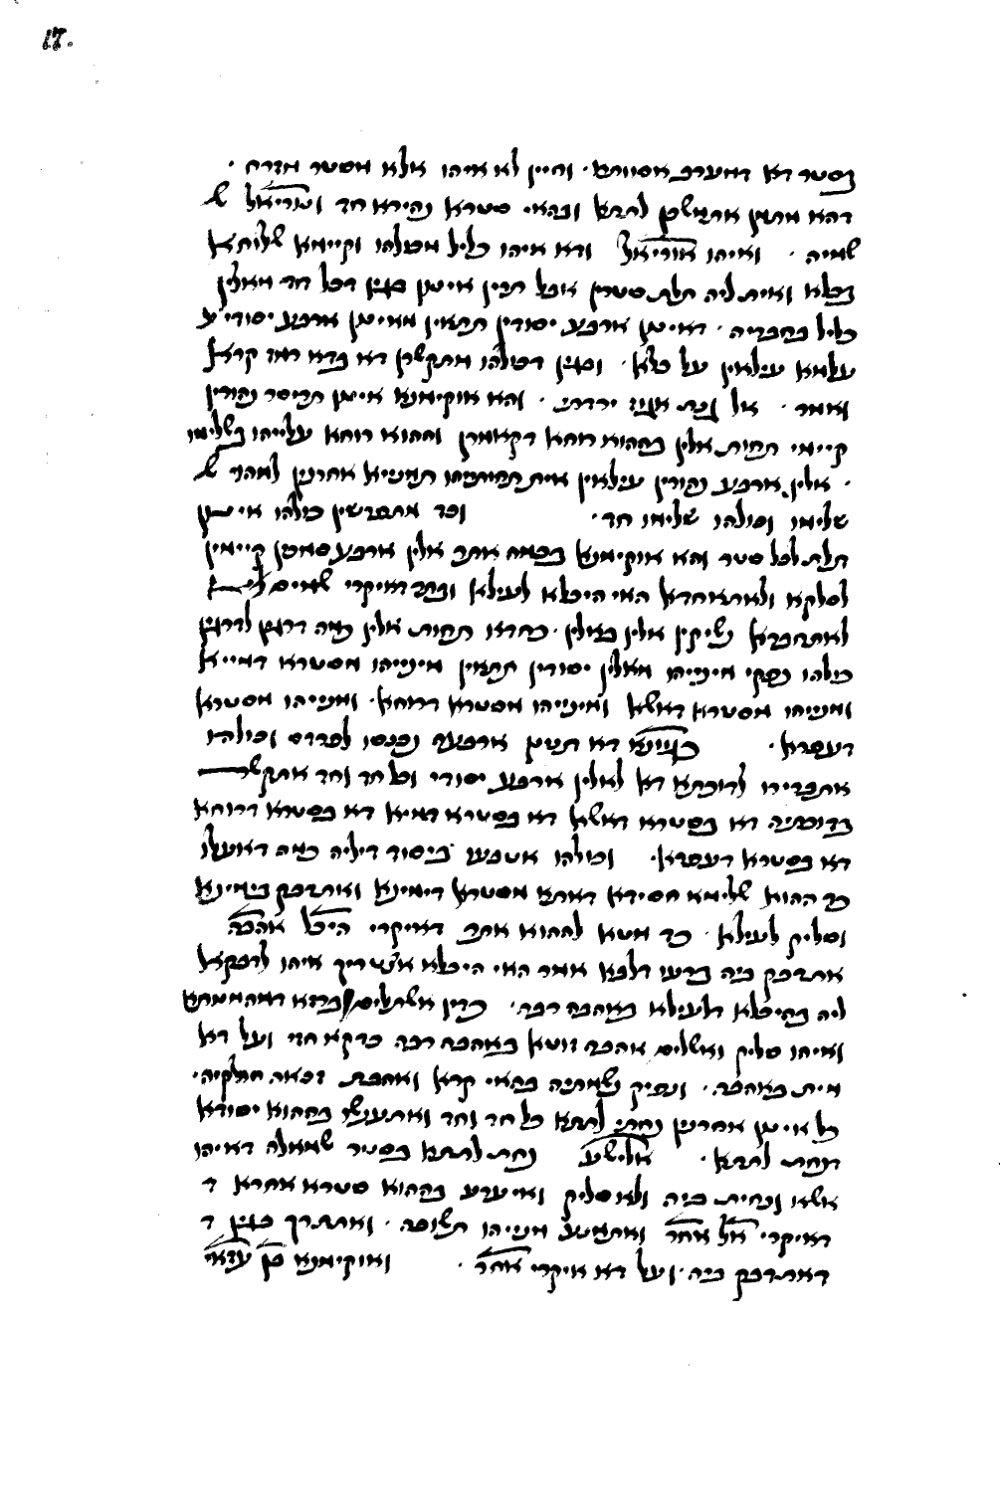 17.
בסטר דא דמערב אסוותא · וחיין לא איהו אלא מסטר מזרח ·
דהא מתמן אתפשט לתתא ובהאי סטרא נהירא חד ונוריאל ש
שמיה · ואיהו אוריאל ודא איהו כליל מכלהו וקיימא שלוחא
בכלא ואית ליה תלת סטרין אוכל תרין אינון כגוון דכל חד מאלין
כליל בחבריה · דאינון ארבע יסודין תתאין מאינון ארבע יסודי ע
עלמא עילאין על כלא · וכגוון דכולהו מתקשרן דא בדא רמז קרא
ואמר · אל גנת אגוז ירדתי · והא אוקימנא אינון תריסר נהורין
קיימי תחות אלין בההוא רוחא דקאמרן וההוא רוחא עלייהו בשלימו
· אלין ארבע נהורין עילאין אית תחותייהו תמנייא אחרנין למהוי ש
שלימו וכולהו שלימו חד · וכד אתפרשין כולהו אינון
תלת לכל סטר והא אוקימנא בכמה אתר אלין ארבע סמכין קיימין
לסלקא ולאתאחדא האי היכלא לעילא ובתר דאיקרי שמים
לאתחברא נשיקין אלין באלין · כחדא תחות אלין כמה דרגין לדרגין
כולהו נפקי מינייהו מאלין יסודין תתאין מינייהו מסטרא דמייא
ומנייהו מסטרא דאשא ומינייהו מסטרא דרוחא · ומנייהו מסטרא
דעפרא · כגוונא דא תנינן ארבעה נכנסו לפרדס וכולהו
אתברירו לדוכתא דא לאלין ארבע יסודי וכל חד וחד אתקשר
בדוכתיה דא בסטרא דאשא דא בסטרא דמיא דא בסטרא דרוחא
דא בסטרא דעפרא · וכולהו אטבעו ביסוד דיליה כמה דאעלו
בר ההוא שלימא חסידא דאתא מסטרא דימינא ואתדבק בימינא
וסליק לעילא · כד מטא לההוא אתר דאיקרי היכל אהבה
אתדבק ביה ברעו דלבא אמר האי היכלא אצטריך איהו לדבקא
ליה בהיכלא דלעילא באהבה רבה · כדין אשתלים ברזא דמהימנותא
ואיהו סליק ואשלים אהבה זוטא באהבה רבה כדקא חזי ועל דא
מית באהבה · ונפיק נשמתיה בהאי קרא ואהבת זכאה חולקיה ·
כל אינון אחרנין נחתו לתתא כל חד וחד ואתענשו בההוא יסודא
דנחת לתתא · אלישע נחת לתתא בסטר שמאלה דאיהו
אשא ונחית ביה ולא סליק ואיערע בההוא סטרא אחרא ד
דאיקרי אל אחר ואתמנע מנייהו תשובה · ואתתרך בגין ד
דאתדבק ביה · ועל דא איקרי אחר · ואוקימנא